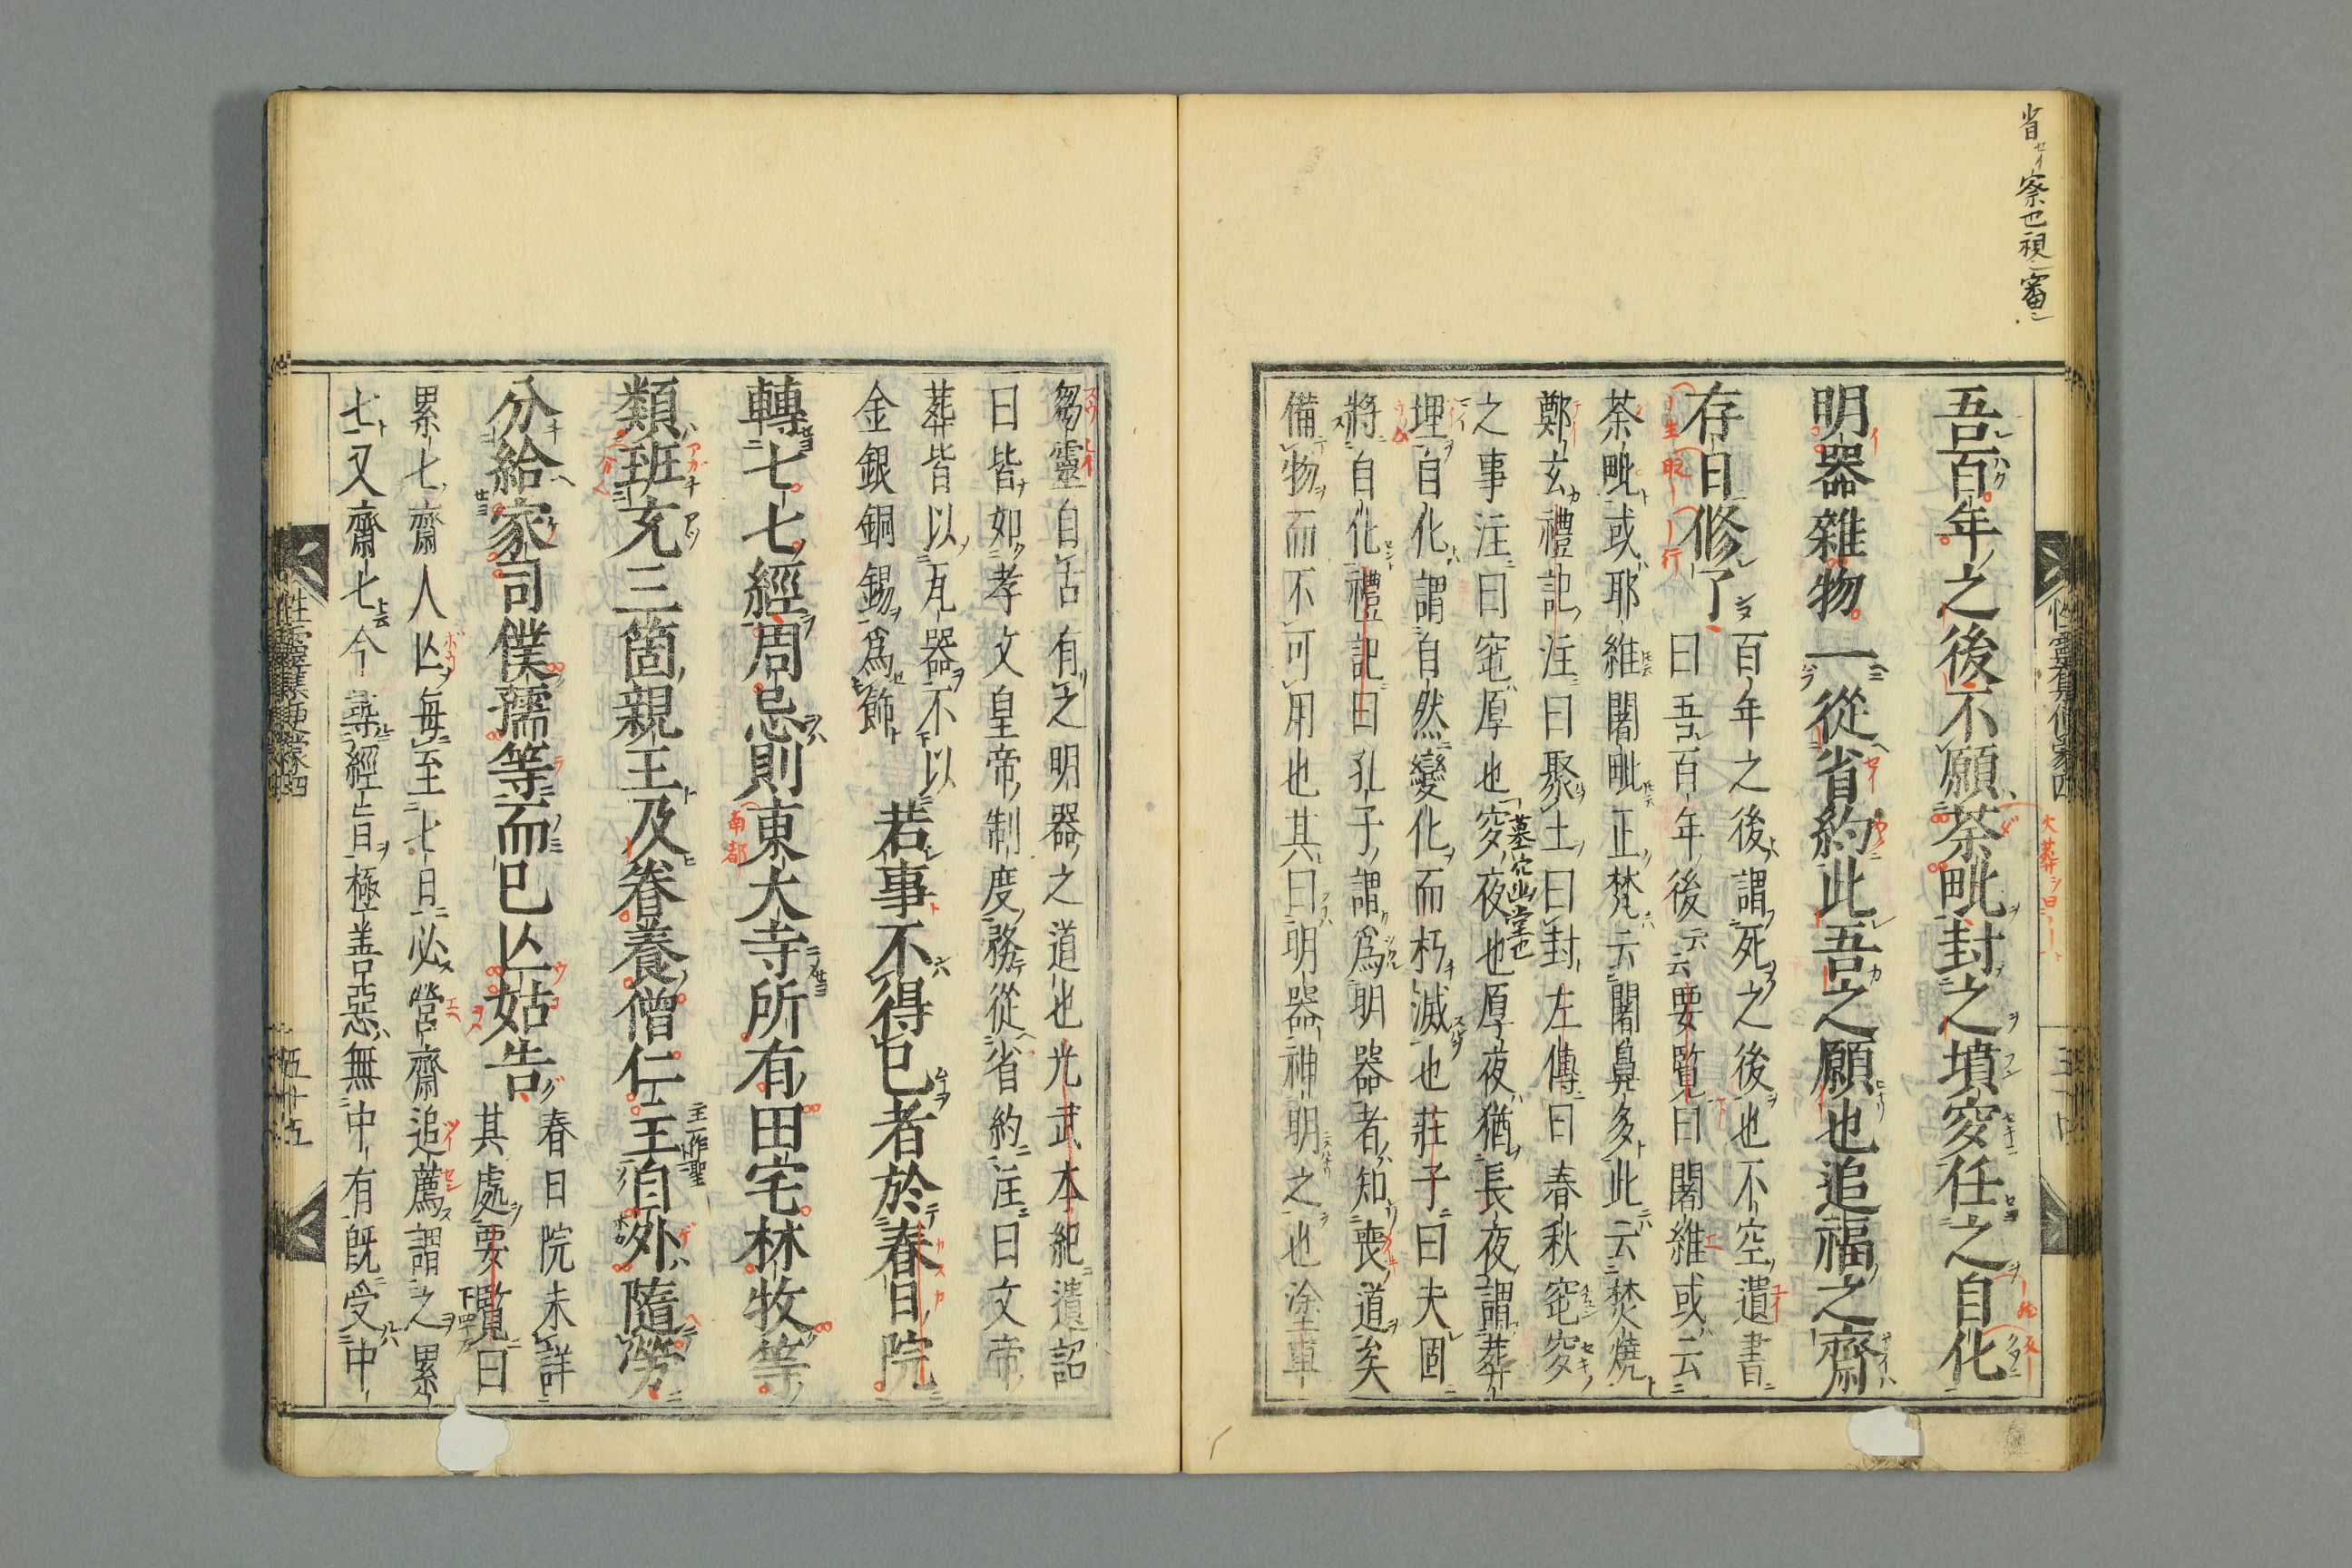 省セイ察也視之審
吾百年之後不願荼毗封之墳窆任之自化
明器雜物一從省約此吾之願也追福之齋
存日修了
百年之後謂死之後也不空遺書
曰吾百年後云云要覽曰闍維或云
荼毗或耶維闍毗正梵云闍鼻多此云焚燒
鄭玄禮記注曰聚土曰封左傳曰春秋窀窆
之事注曰窀厚也窆夜也厚夜猶長夜謂葬
墓穴幽堂也
埋自化謂自然變化而朽滅也莊子曰夫固
將自化禮記曰孔子謂爲明器者知喪道矣
備物而不可用也其曰明器神明之也塗車
芻靈自古有之明器之道也光武本紀遺詔
曰皆如孝文皇帝制度務從省約注曰文帝
葬皆以瓦器不以
金銀銅錫爲飾
若事不得已者於春日院
轉七七經周忌則東大寺所有田宅林牧等
南都
類班充三箇親王及眷養僧仁王自外隨勞
主一作聖
分給家司僕孺等而已亾姑告
春日院未詳
其處要覽曰
累七齋人亾每至七日必營齋追薦謂之累
七又齋七今尋經旨極善惡無中有既受中
性靈集便蒙四
五十五